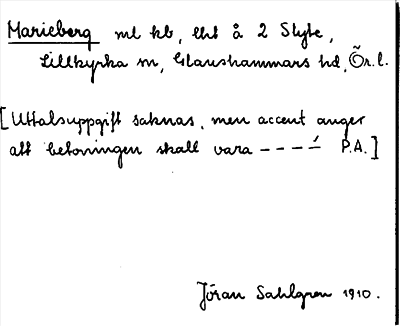 Marieberg ml kb, lht å 2 Style,
Lillkyrka sn, Glanshammars hd, Ör. l.
[Uttalsuppgift saknas, men accent anger
att betoningen skall vara - - - -́ P.A.]
Jöran Sahlgren 1910.